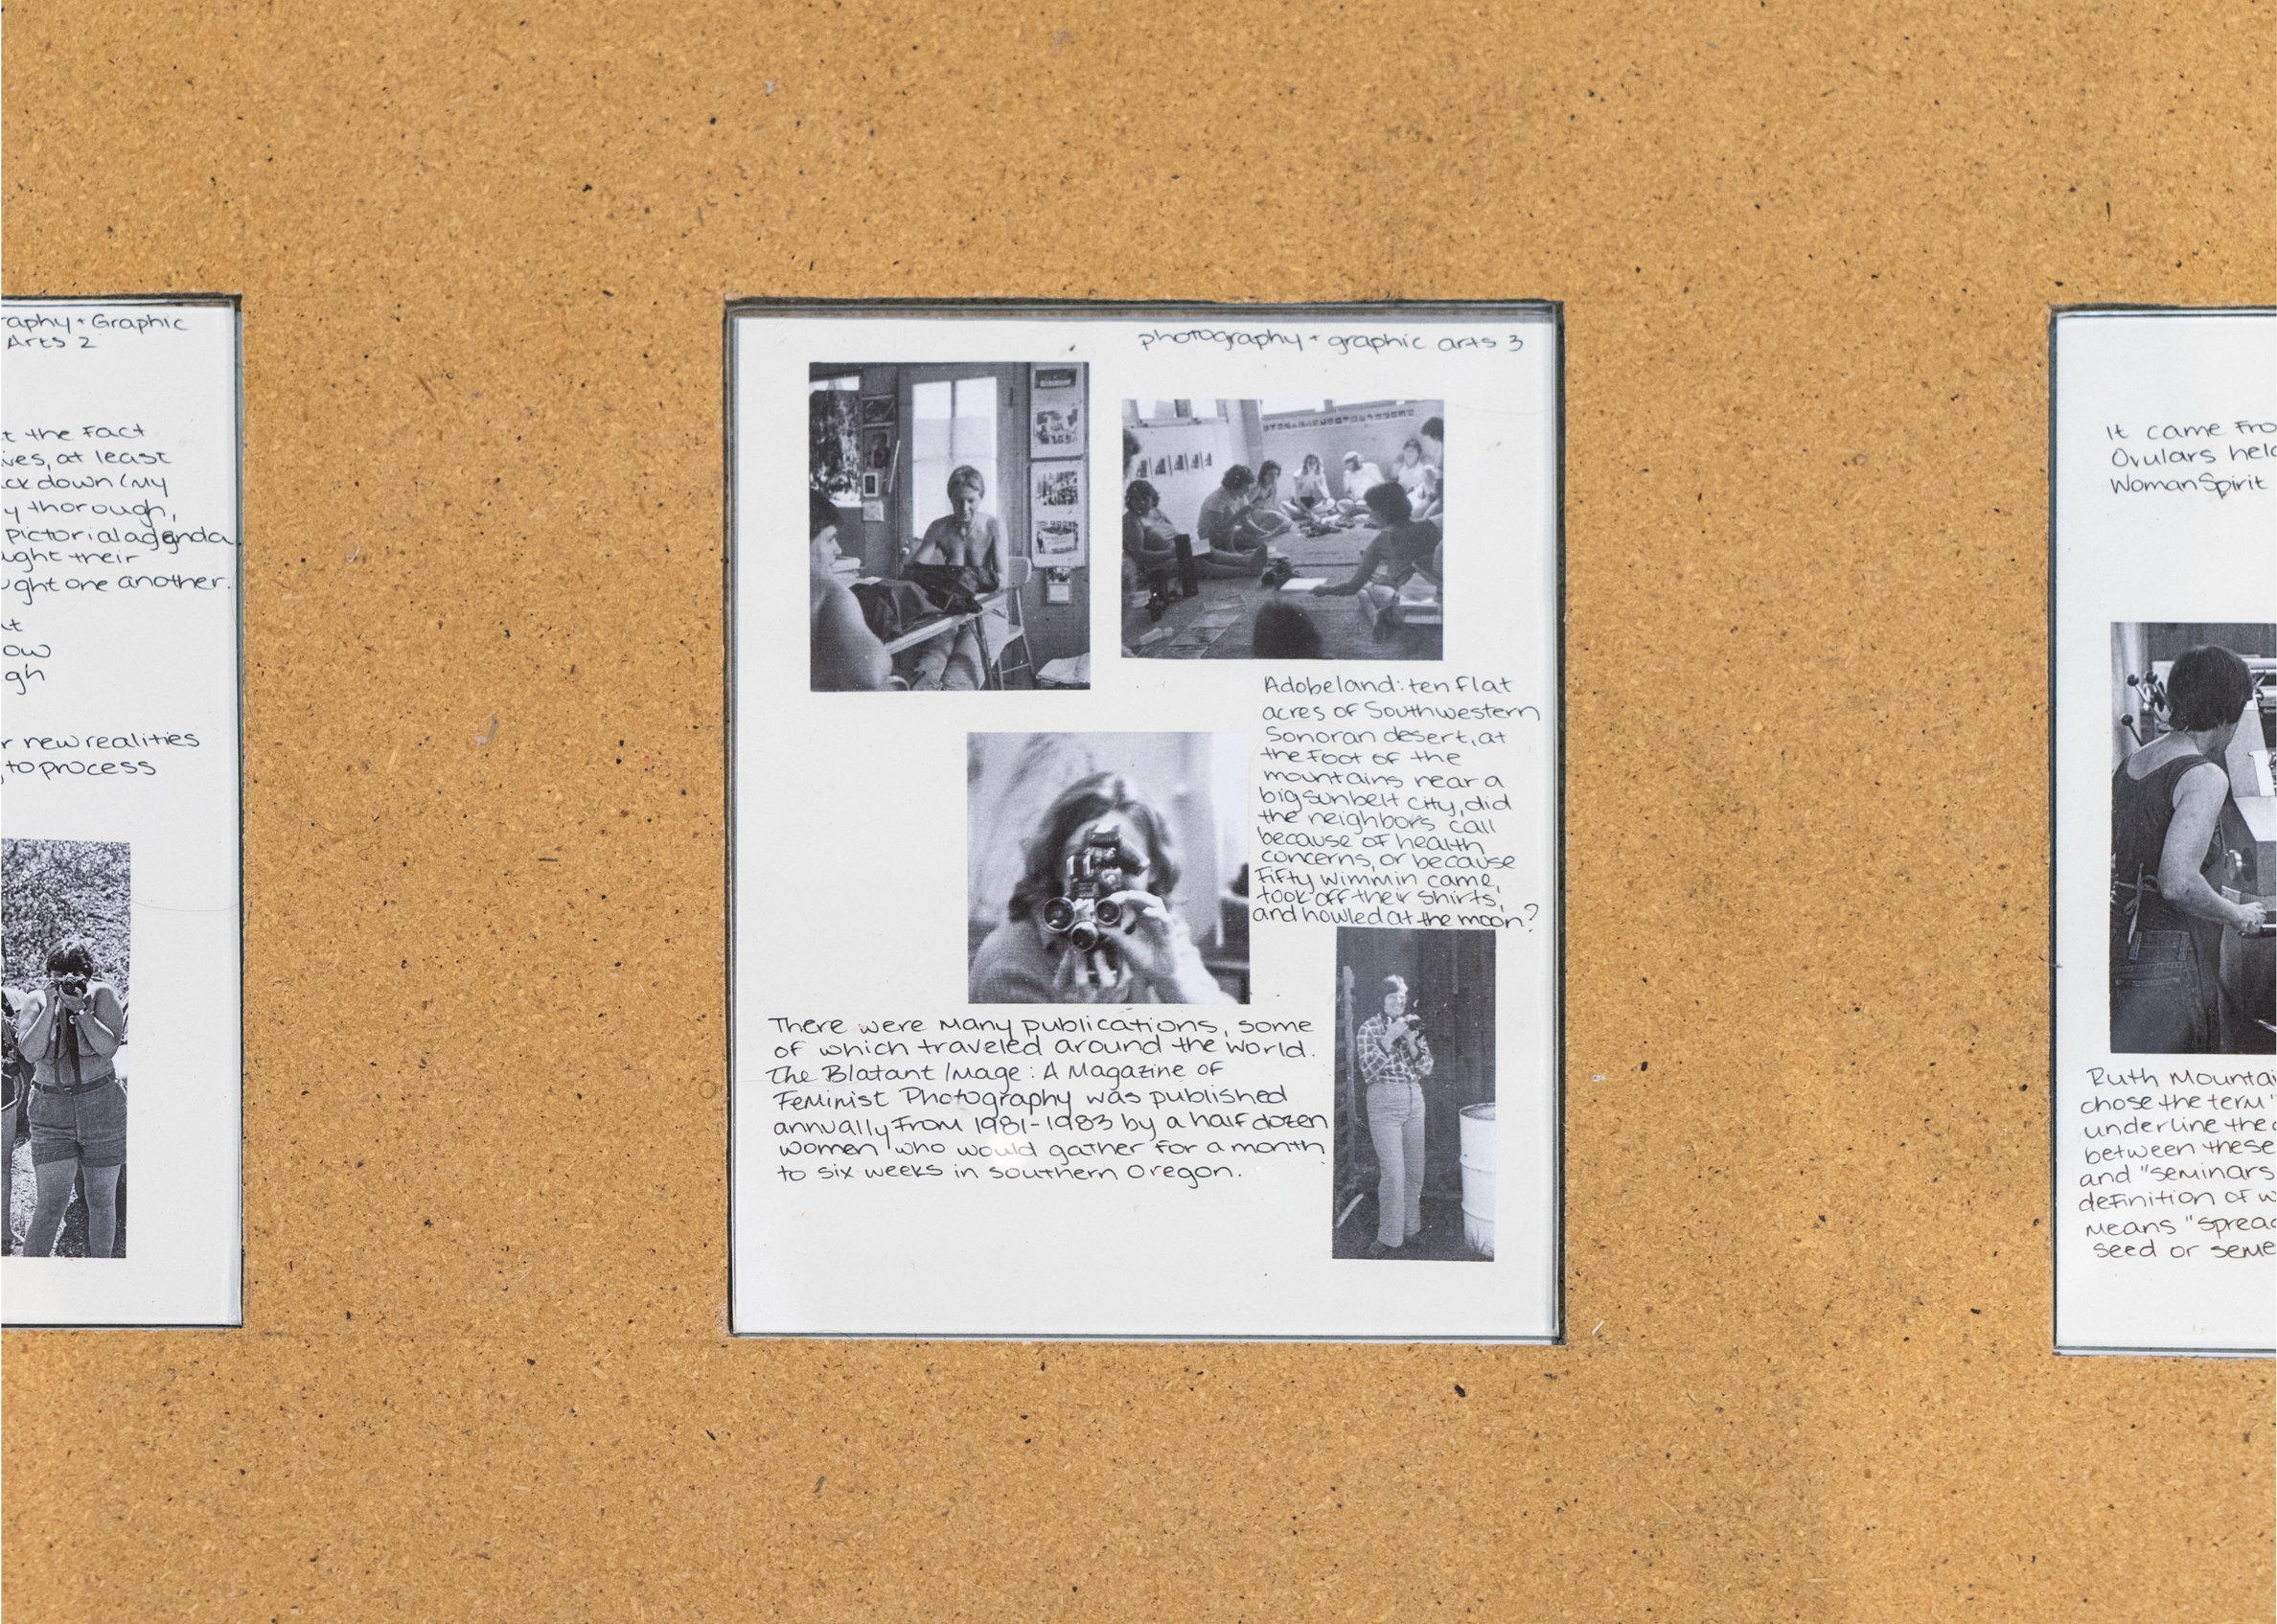 Graphic
Arts 2
the Fact
at least
down (my
thorough,
pictorial agenda
their
one another.
new realities
to process
photography + graphic arts 3
Adobeland: ten flat
acres of Southwestern
Sonoran desert, at
the foot of the
mountains near a
big sunbelt city, did
the neighbors call
because of health
concerns, or because
Fifty wimmin came,
took off their shirts,
and howled at the moon?
There were many publications, some
of which traveled around the world.
The Blatant Image: A Magazine of
Feminist Photography was published
annually from 1981-1983 by a half dozen
women who would gather for a month
to six weeks in southern Oregon.
It came
Ovulars
WomanSpirit
Ruth
chose the term "
underline the
between these
and "seminars
definition of
means
seed or